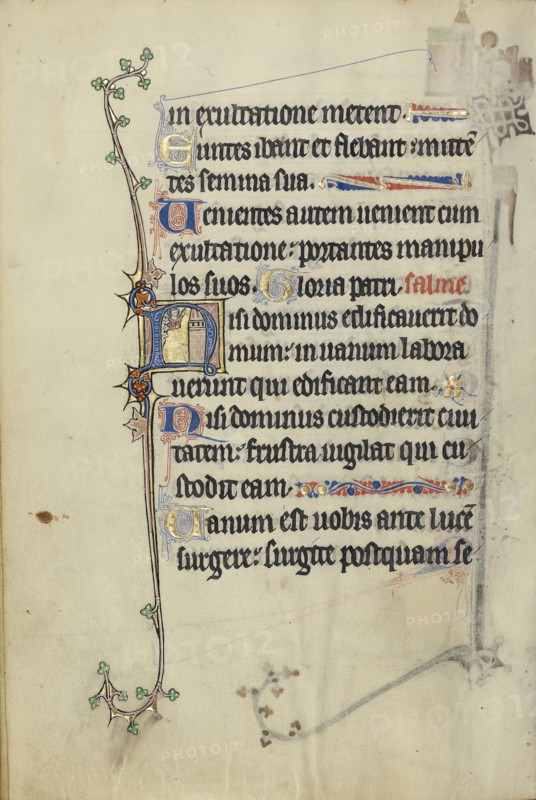 in exultatione metent.
Euntes ibant et flebant: mittē
tes semina sua.
Uenientes autem uenient cum
exultatione: portantes manipu
los suos. Gloria patri. salme
Nisi dominus edificauerit do
mum: in uanum labora
uerunt qui edificant eam.
Nisi dominus custodierit ciui
tatem: frustra uigilat qui cu
stodit eam.
Uanum est uobis ante lucē
surgere: surgite postquam se